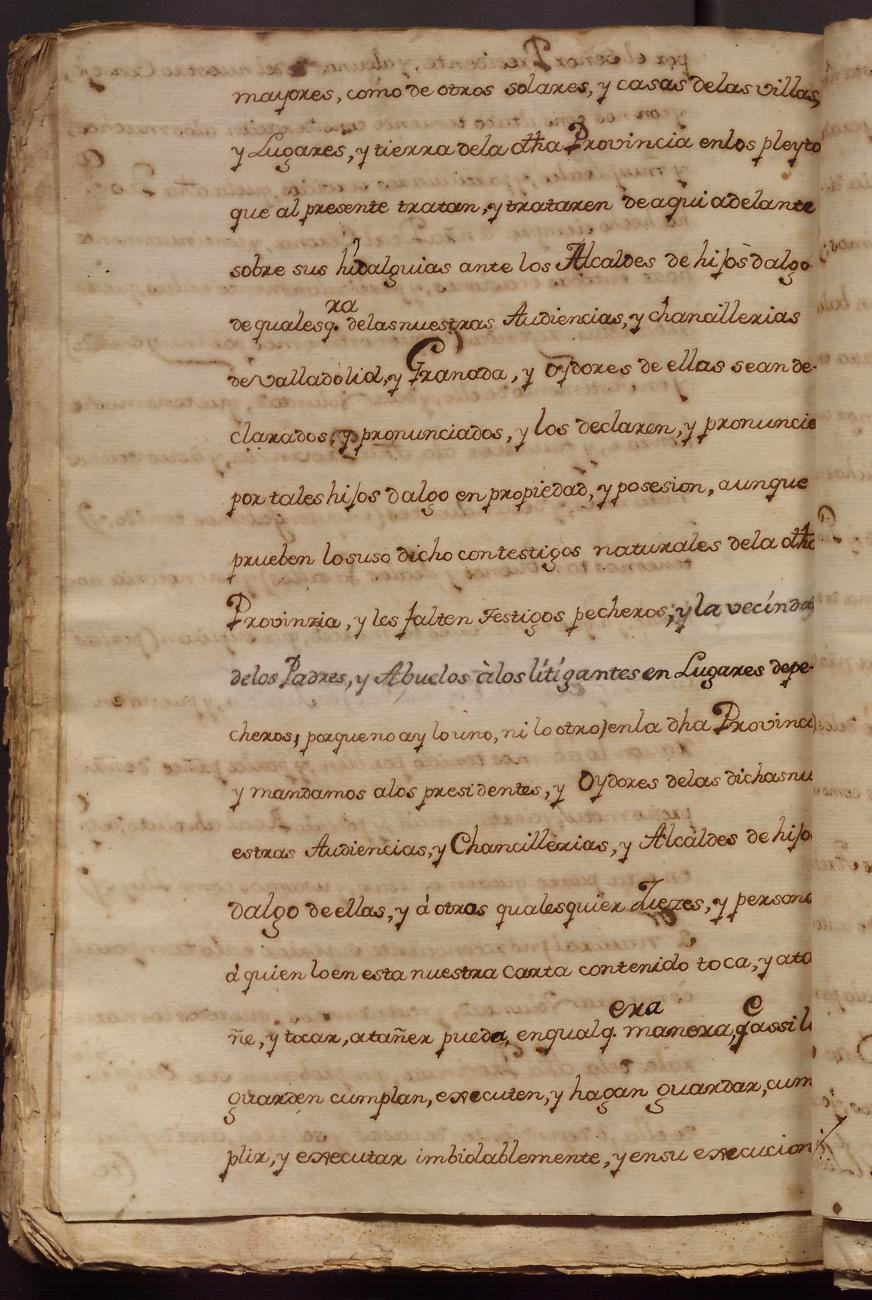 mayores, como de otros solares, y casas delas villas,
y Lugares, y tierra dela dha Provincia enlos pleyto
que al presente tratan, y trataren de aqui adelante
sobre sus hidalguias ante los Alcaldes de hijos dalgo
de qualesq.ra delas nuestras Audiencias, y chancillerias
de Valladolid, y Granada, y Oydores de ellas sean de-
clarados, y pronunciados, y los declaren, y pronuncie
por tales hijos dalgo en propiedad, y posesion, aunque
prueben lo suso dicho con testigos naturales dela dha
Provinzia, y les falten Testigos pecheros, y la vecindad
delos Padres, y Abuelos à los lítígantes en Lugares de pe-
cheros, porque no ay lo uno, ni lo otro, en la dha Provinci
y mandamos a los presidentes, y Oydores delas dichas nu
estras Audiencias, y Chancillerias, y Alcaldes de hijo
dalgo de ellas, y á otros qualesquier Juezes, y persona
á quien lo en esta nuestra Carta contenido toca, y ata
ñe, y tocar, atañer pueda, en qualq.era manera, q.e assi l
guarden cumplan, executen, y hagan guardar, cum
plir, y executar imbiolablemente, y en su execucion